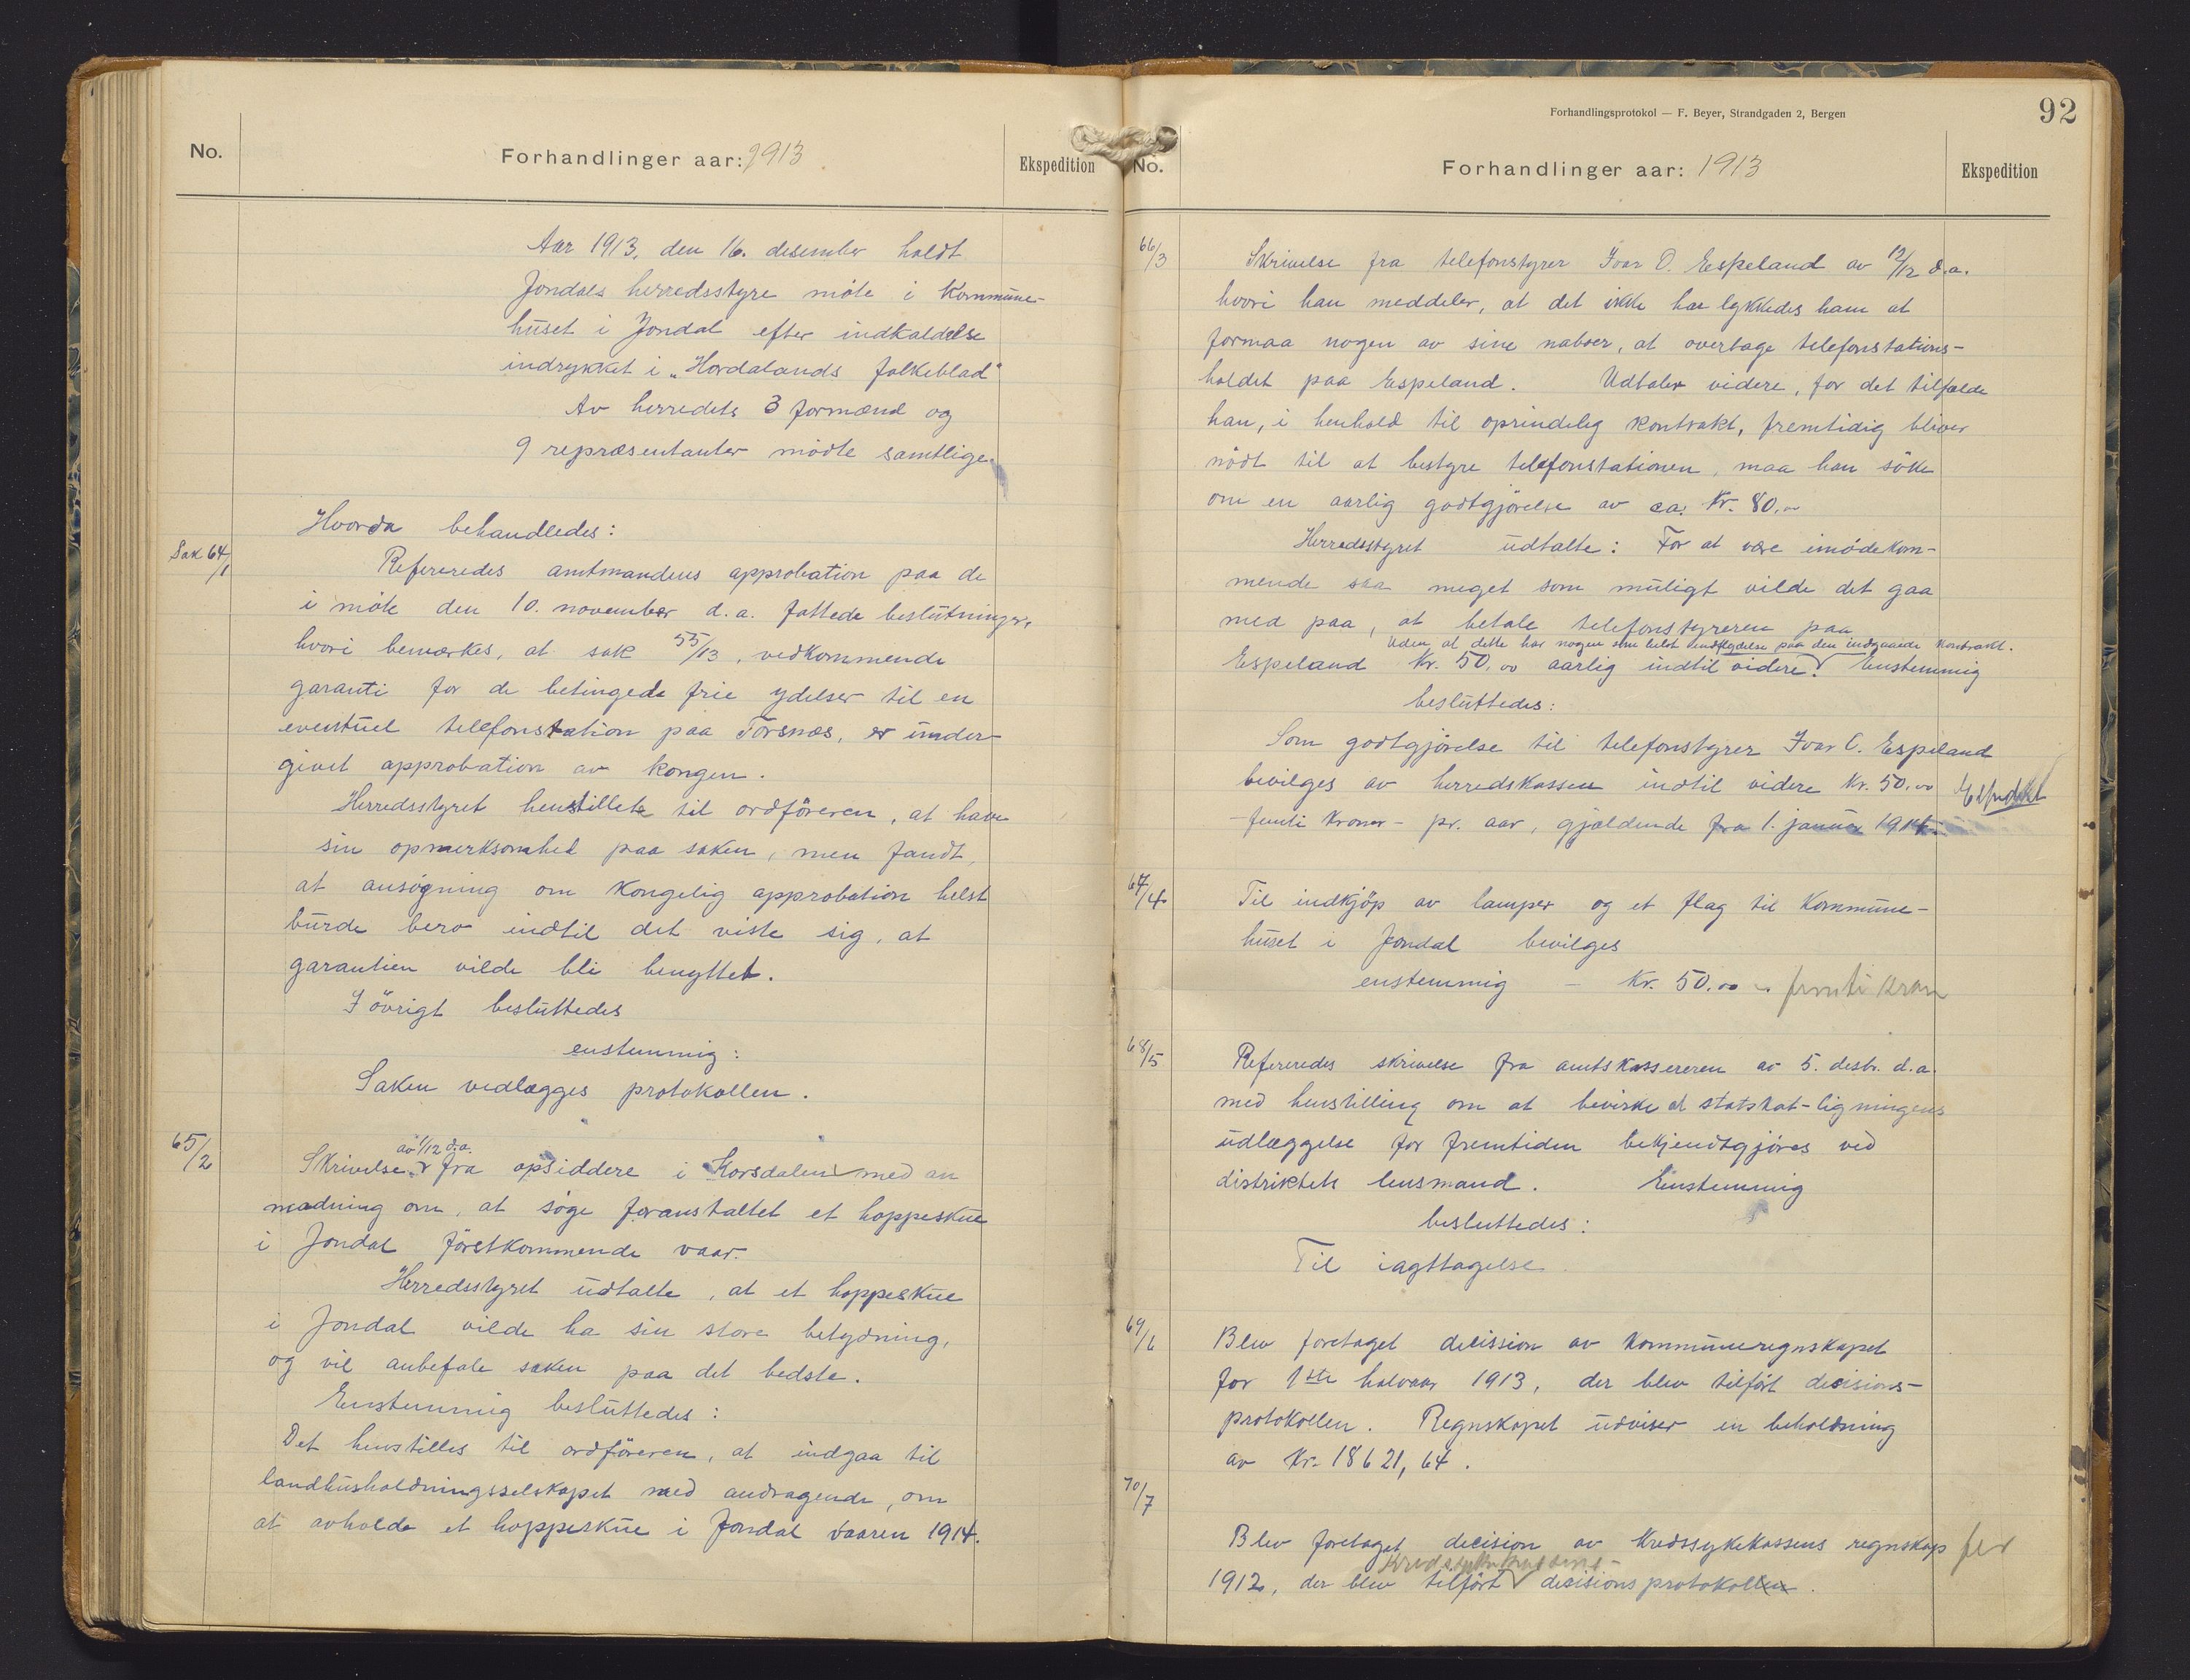 No.
Forhandlinger aar: 1913
Ekspedition
Aar 1913, den 16. desember holdt
Jondals herredsstyre möte i Kommune-
huset i Jondal efter indkaldelse
indrykket i „Hordalands folkeblad"
Av herredets 3 formænd og
9 repræsentanter mödte samtlige.
Hvorda behandledes:
Sak 64/1
Refereredes amtmandens approbation paa de
i möte den 10. november d.a. fattede beslutninger,
hvori bemærkes, at sak 55/13, vedkommende
garanti for de betingede frie ydelser til en
eventuel telefonstation paa Torsnæs, er under-
givet approbation av kongen.
Herredsstyret henstillet til ordföreren, at have
sin opmerksomhet paa saken, men fandt,
at ansögning om Kongelig approbation helst
burde bero indtil det viste sig, at
garantien vilde bli benyttet.
I övrigt besluttedes
enstemmig:
Saken vedlægges protokollen.
65/2
av 1/12 d.a.
Skrivelse fra opsiddere i Korsdalen med an
modning om, at söge foranstaltet et hoppeskue
i Jondal förstkommende vaar.
Herredsstyret udtalte, at et hoppeskue
i Jondal vilde ha sin store betydning,
og vil anbefale saken paa det bedste.
Enstemmig besluttedes:
Det henstilles til ordföreren, at indgaa til
landhusholdningsselskapet med andragende, om
at avholde et hoppeskue i Jondal vaaren 1914.
Forhandlingsprotokol — F. Beyer, Strandgaden 2, Bergen
92
No.
Forhandlinger aar: 1913
Ekspedition
66/3
Skrivelse fra telefonstyrer Ivar O. Espeland av 12/12 d.a.
hvori han meddeler, at det ikke har lykkedes ham at
formaa nogen av sine naboer, at overtage telefonstations-
holdet paa Espeland. Udtaler videre, for det tilfælde
han, i henhold til oprindelig kontrakt, fremtidig bliver
nödt til at bestyre telefonstationen, maa han söke
om en aarlig godtgjörelse av ca. Kr. 80.00
Herredsstyret udtalte: For at være imödekom-
mende saa meget som muligt vilde det gaa
med paa, at betale telefonstyreren paa
uden at dette har nogen som helst indflydelse paa den indgaaede Kontrakt.
Espeland Kr. 50.00 aarlig indtil videre. Enstemmig
besluttedes:
Som godtgjörelse til telefonstyrer Ivar O. Espeland
bevilges av herredskassen indtil videre Kr. 50.00
- femti Kroner - pr. aar, gjældende fra 1. januar 1914.
67/4
Til indkjöp av lamper og et flag til Kommune-
huset i Jondal bevilges
enstemmig - Kr. 50.00 femti kron
68/5
Refereredes skrivelse fra amtskassereren av 5. desbr. d.a.
med henstilling om at bevirke at statskat-ligningens
udlæggelse for fremtiden bekjendtgjöres ved
distriktets lensmand. Enstemmig
besluttedes:
Til iagttagelse.
69/6
Blev foretaget decission av Kommuneregnskapet
for 1ste halvaar 1913, der blev tilfört decisions-
protokollen. Regnskapet udviser en beholdning
av Kr. 18621,64.
70/7
Blev foretaget decision av Kredssykekassens regnskap for
1912, der blev tilfört decisionsprotokollen.